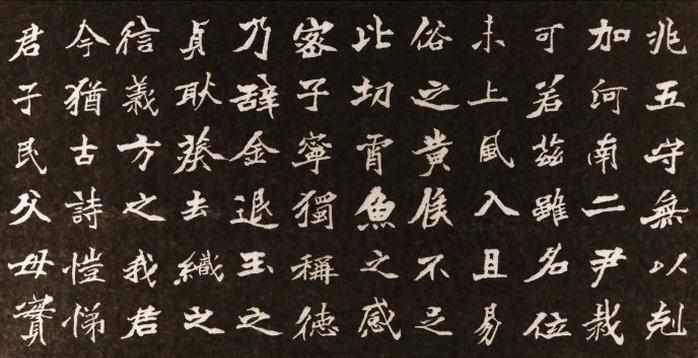 兆五守無以剋
加河南二尹裁
可若茲雖名位
未上風入且易
俗之黄侯不足
比切霄魚之感
密子寧獨稱德
乃辭金退玉之
貞耿葵去織之
信義方之我君
今猶古詩愷悌
君子民父母實